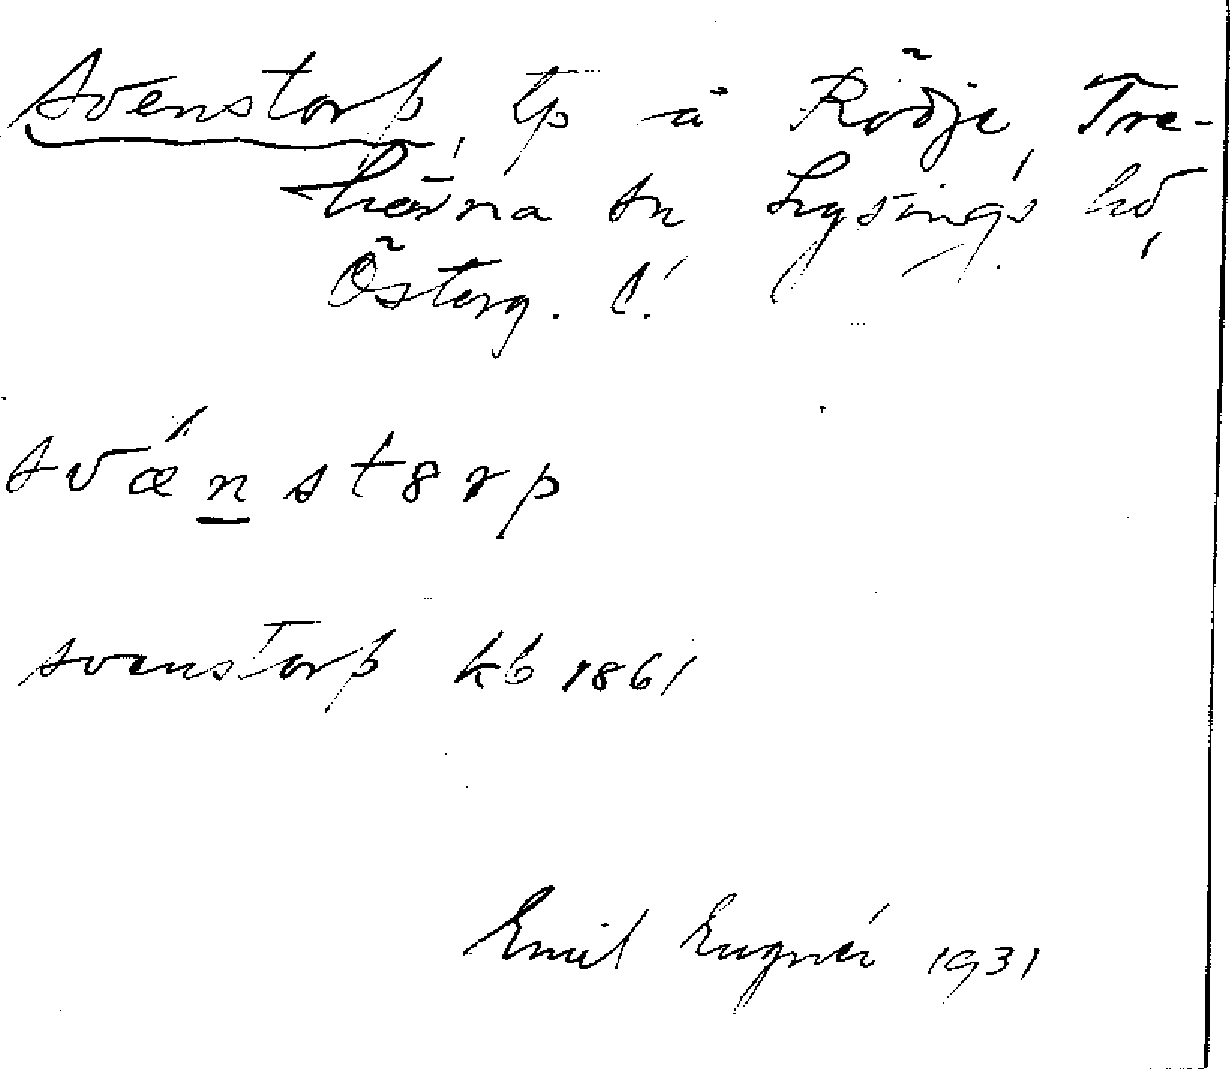 Svenstorp, tp å Rödje, Tre-
hörna sn Lysings hd,
Österg. l.
svǽn̲st8rp
svenstorp kb 1861
Emil Eugnér 1931